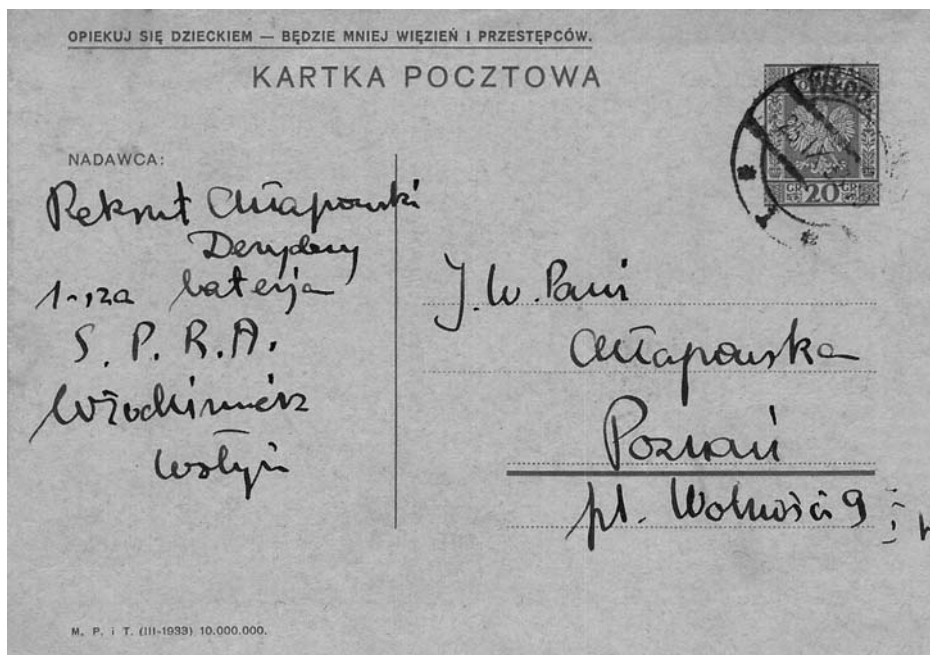 OPIEKUJ SIĘ DZIECKIEM — BĘDZIE MNIEJ WIĘZIEŃ I PRZESTĘPCÓW.
KARTKA POCZTOWA
GR 20 GR
NADAWCA:
Rekrut Chłapowski
Dezydery
1-sza baterja
S. P. R. A.
Włodzimierz
Wołyń
J. W. Pani
Chłapowska
Poznań
pl. Wolności 9
M. P. i T. (III-1933) 10.000.000.